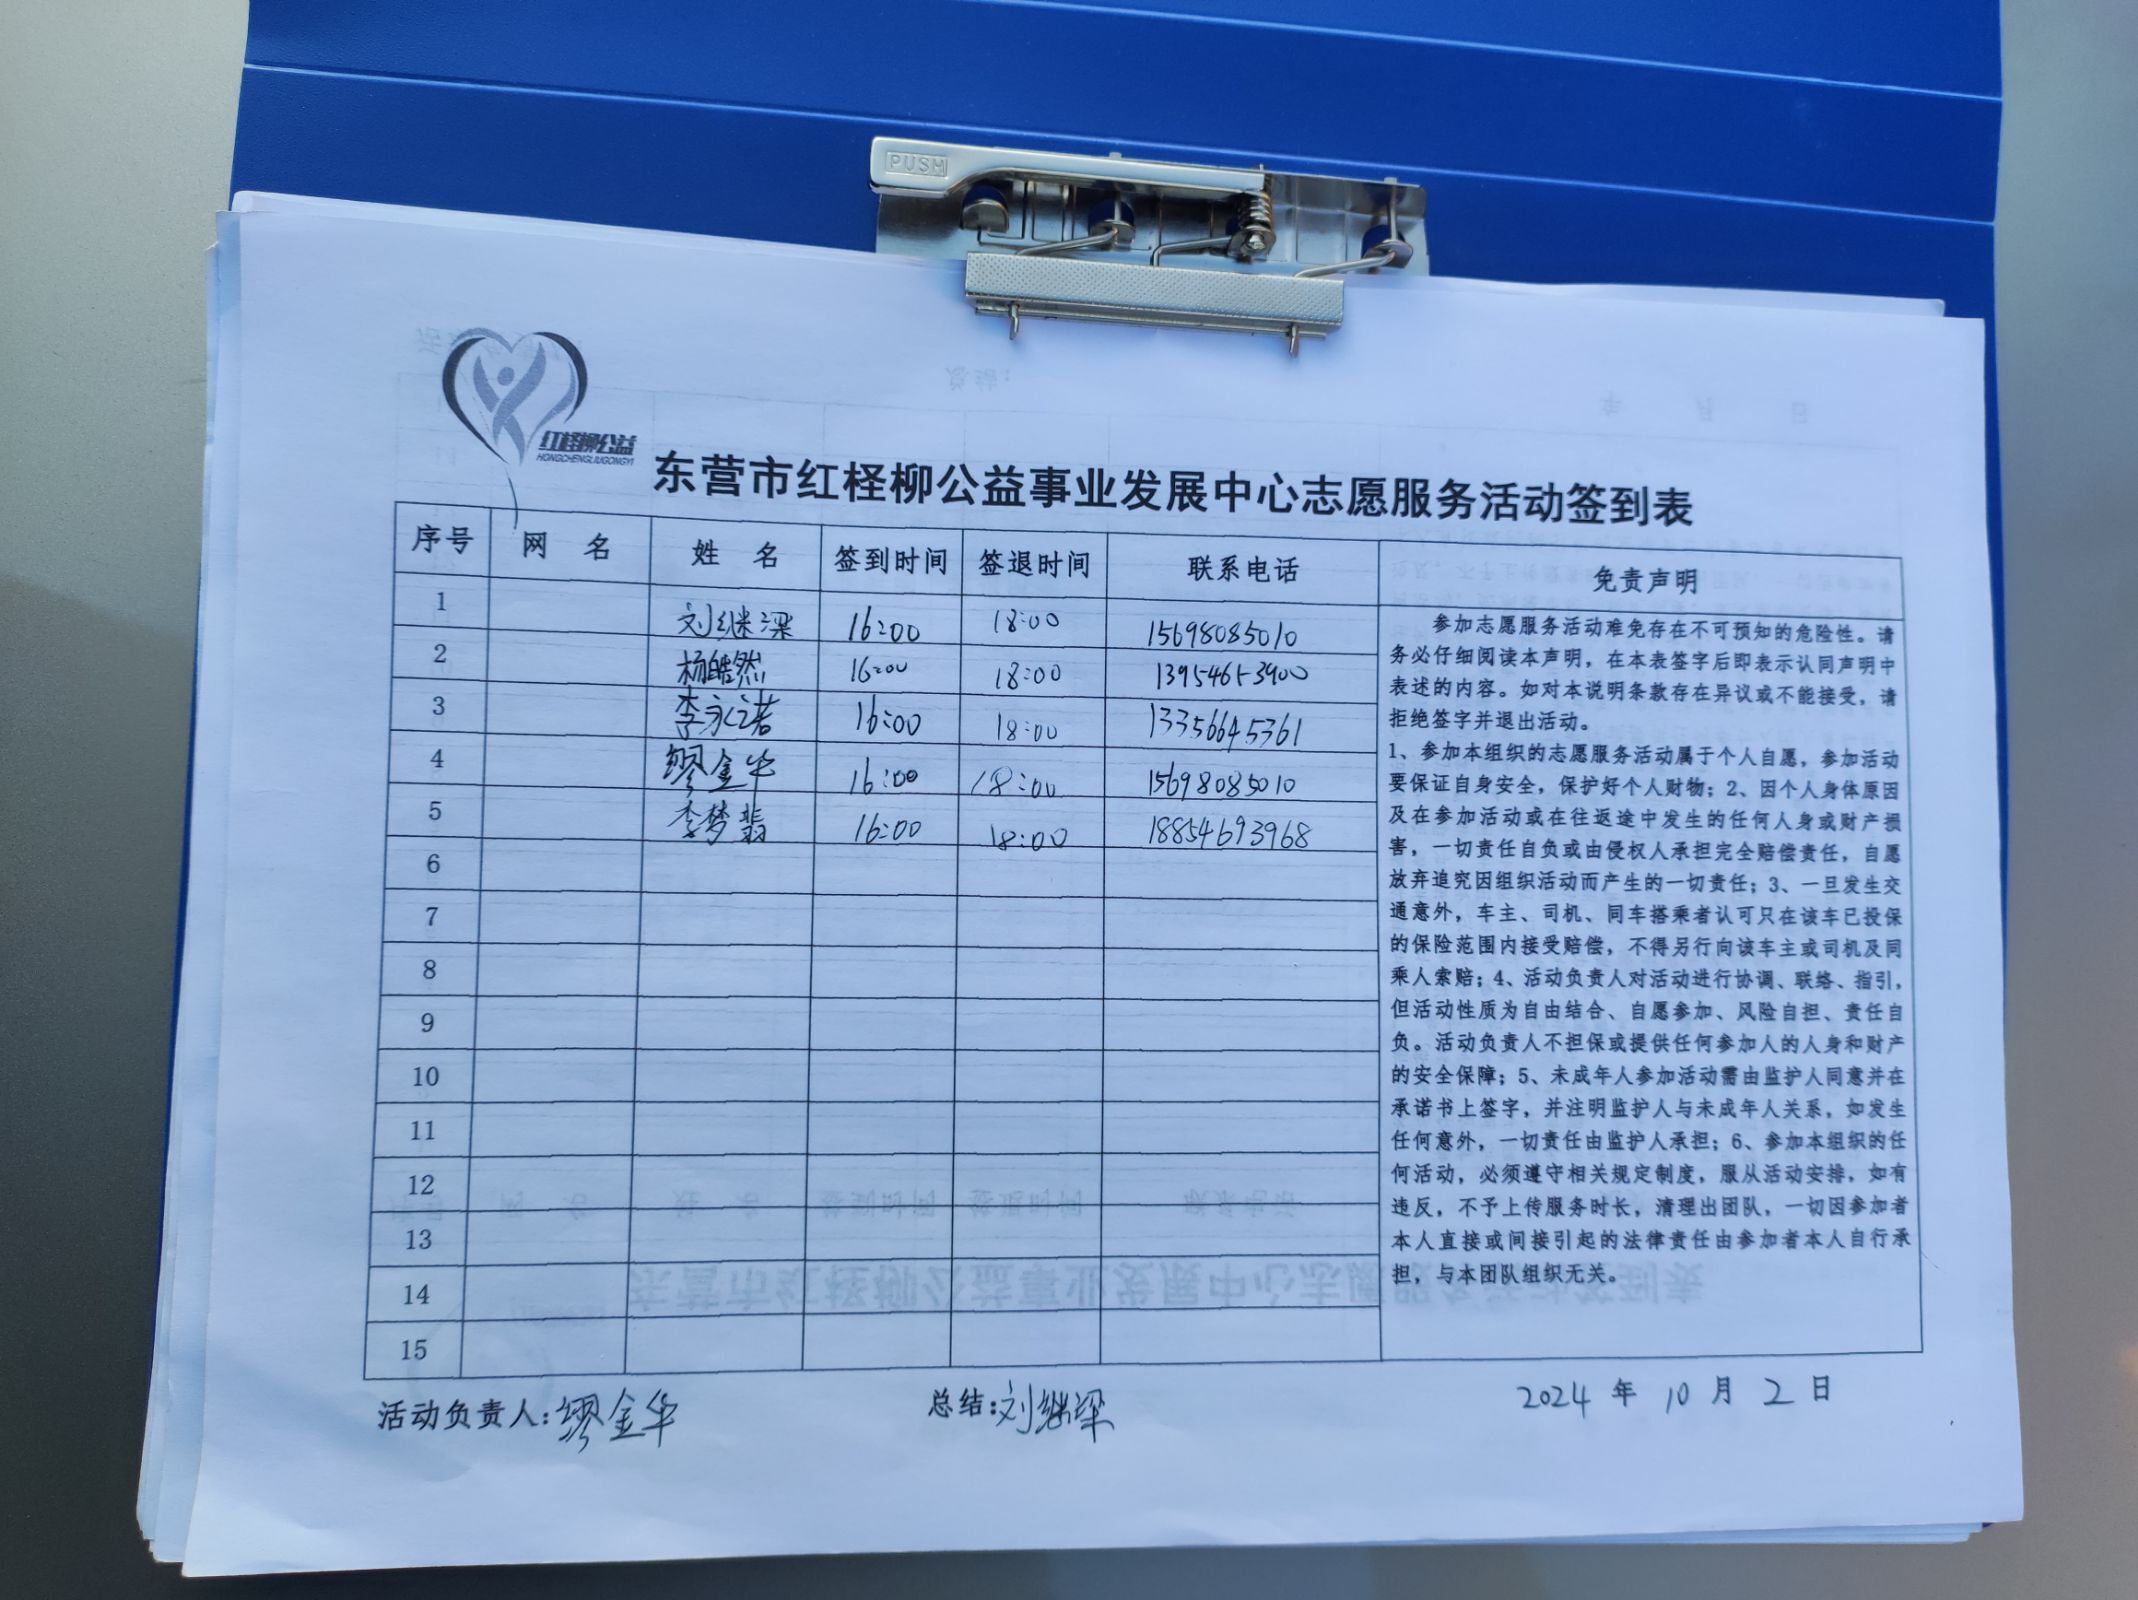 PUSH
红柽柳公益
HONGCHENGLIUGONGYI
东营市红柽柳公益事业发展中心志愿服务活动签到表
序号 网 名 姓 名 签到时间 签退时间 联系电话 免责声明
1 刘继深 16:00 18:00 15698085010
2 杨皓然 16:00 18:00 13954653900
3 李永诺 16:00 18:00 13356645361
4 缪金华 16:00 18:00 15698085010
5 李梦翡 16:00 18:00 18854693968
6
7
8
9
10
11
12
13
14
15
参加志愿服务活动难免存在不可预知的危险性。请
务必仔细阅读本声明，在本表签字后即表示认同声明中
表述的内容。如对本说明条款存在异议或不能接受，请
拒绝签字并退出活动。
1、参加本组织的志愿服务活动属于个人自愿，参加活动
要保证自身安全，保护好个人财物；2、因个人身体原因
及在参加活动或在往返途中发生的任何人身或财产损
害，一切责任自负或由侵权人承担完全赔偿责任，自愿
放弃追究因组织活动而产生的一切责任；3、一旦发生交
通意外，车主、司机、同车搭乘者认可只在该车已投保
的保险范围内接受赔偿，不得另行向该车主或司机及同
乘人索赔；4、活动负责人对活动进行协调、联络、指引，
但活动性质为自由结合、自愿参加、风险自担、责任自
负。活动负责人不担保或提供任何参加人的人身和财产
的安全保障；5、未成年人参加活动需由监护人同意并在
承诺书上签字，并注明监护人与未成年人关系，如发生
任何意外，一切责任由监护人承担；6、参加本组织的任
何活动，必须遵守相关规定制度，服从活动安排，如有
违反，不予上传服务时长，清理出团队，一切因参加者
本人直接或间接引起的法律责任由参加者本人自行承
担，与本团队组织无关。
活动负责人：缪金华 总结：刘继深 2024 年 10 月 2 日